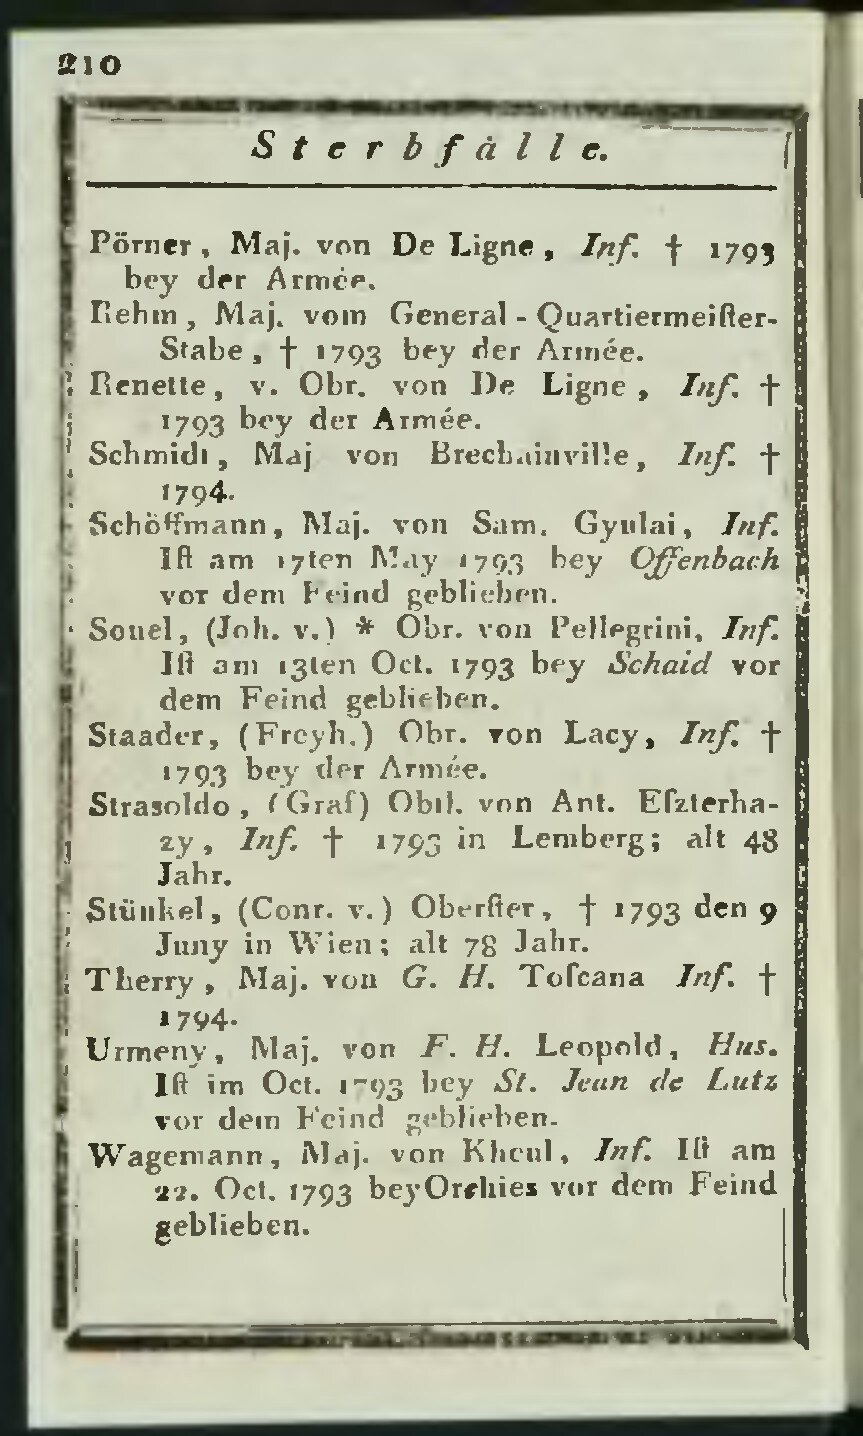 210
Sterbfälle.
Pörner, Maj. von De Ligne, Inf. † 1793
bey der Armée.
Rehm, Maj. vom General-Quartiermeiſter-
Stabe, † 1793 bey der Armée.
Renette, v. Obr. von De Ligne, Inf. †
1793 bey der Armée.
Schmidt, Maj von Brechainville, Inf. †
1794.
Schöffmann, Maj. von Sam. Gyulai, Inf.
Iſt am 17ten May 1793 bey Offenbach
vor dem Feind geblieben.
Souel, (Joh. v.) * Obr. von Pellegrini, Inf.
Iſt am 13ten Oct. 1793 bey Schaid vor
dem Feind geblieben.
Staader, (Freyh.) Obr. von Lacy, Inf. †
1793 bey der Armée.
Strasoldo, (Graf) Obtl. von Ant. Eſzterha-
zy, Inf. † 1793 in Lemberg; alt 48
Jahr.
Stünkel, (Conr. v.) Oberſter, † 1793 den 9
Juny in Wien; alt 78 Jahr.
Therry, Maj. von G. H. Toſcana Inf. †
1794.
Urmeny, Maj. von F. H. Leopold, Hus.
Iſt im Oct. 1793 bey St. Jean de Lutz
vor dem Feind geblieben.
Wagemann, Maj. von Kheul, Inf. Iſt am
22. Oct. 1793 bey Orchies vor dem Feind
geblieben.